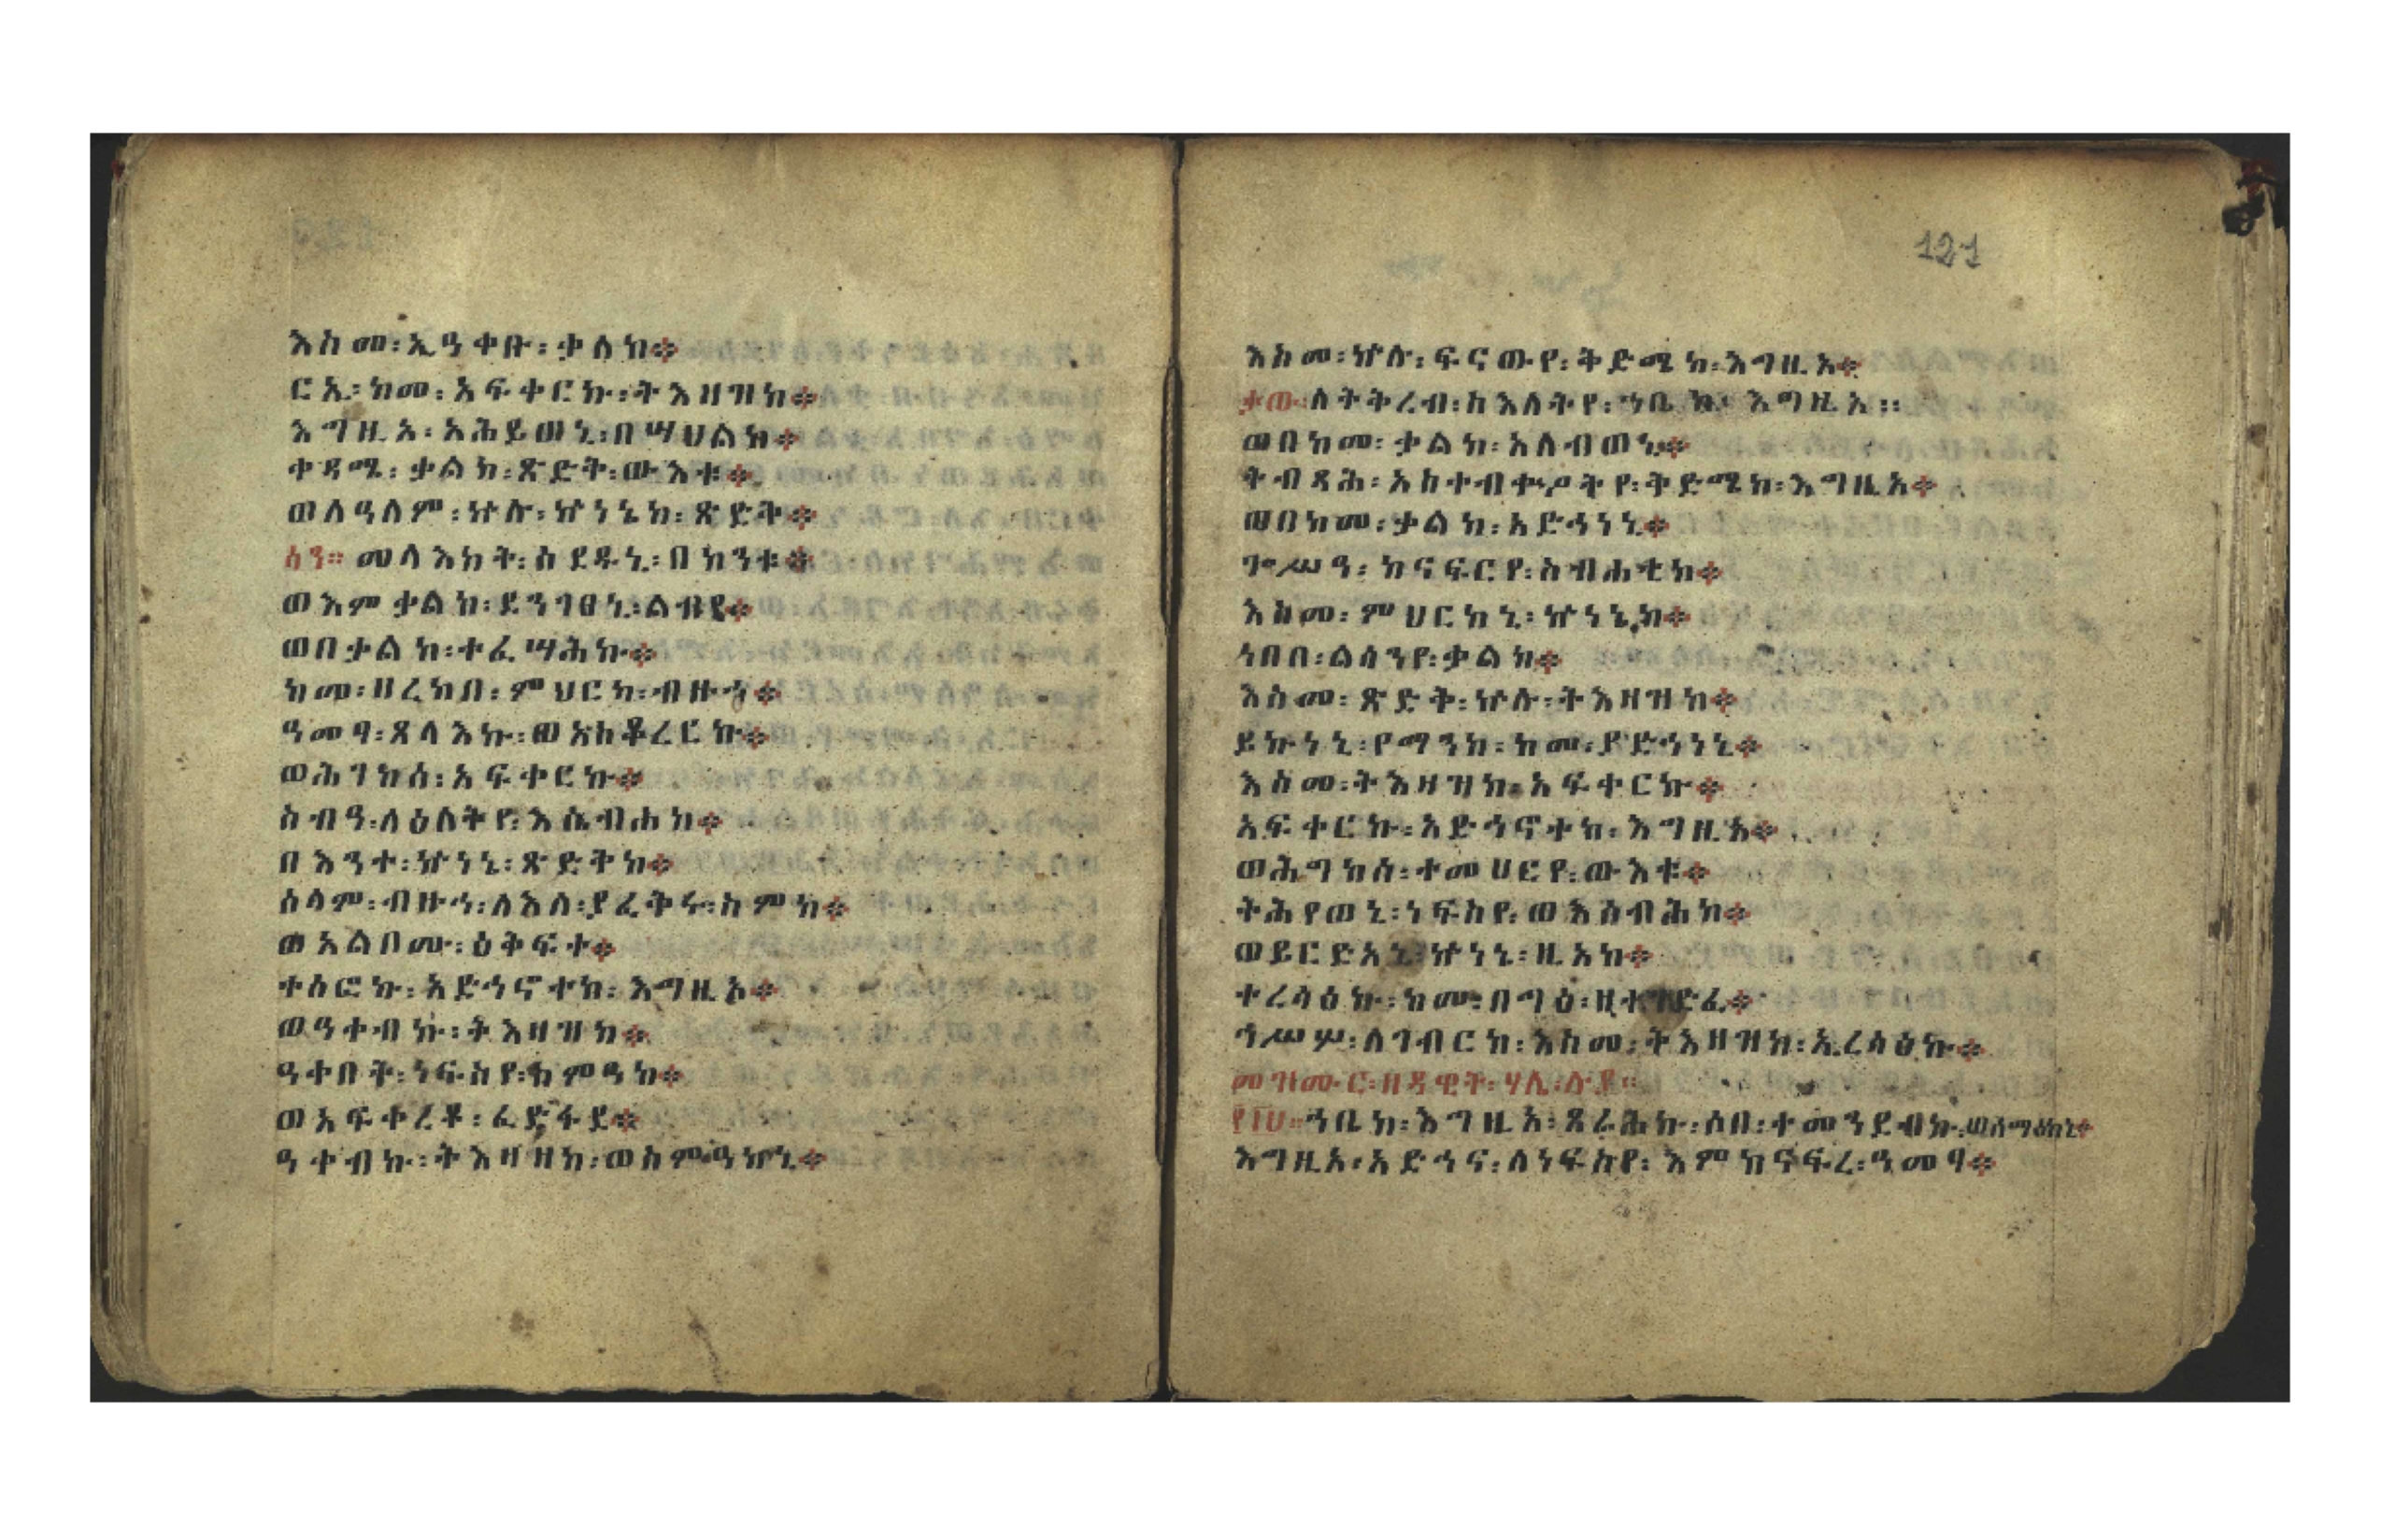 እስመ፡ኢዓቀቡ፡ቃለከ፨
ርኢ፡ከመ፡አፍቀርኩ፡ትእዛዝከ፨
እግዚኦ፡አሕይወኒ፡በሣህልከ፨
ቀዳሜ፡ቃልከ፡ጽድቅ፡ውእቱ፨
ወለዓለም፡ኵሉ፡ኵነኔከ፡ጽድቅ፨
ሳን። መላእክት፡ሰደዱኒ፡በከንቱ፨
ወእምቃልከ፡ደንገፀኒ፡ልብየ፨
ወበቃልከ፡ተፈሣሕኩ፨
ከመ፡ዘረከበ፡ምህርካ፡ብዙኀ፨
ዓመፃ፡ጸላእኩ፡ወአስቆረርኩ፨
ወሕገከሰ፡አፍቀርኩ፨
ስብዓ፡ለዕለትየ፡እሴብሐከ፨
በእንተ፡ኵነኔ፡ጽድቅከ፨
ሰላም፡ብዙኅ፡ለእለ፡ያፈቅሩ፡ስምከ፨
ወአልቦሙ፡ዕቅፍተ፨
ተሰፎኩ፡አድኅኖተከ፡እግዚኦ፨
ወዓቀብኩ፡ትእዛዝከ፨
ዓቀበት፡ነፍስየ፡ስምዓከ፨
ወአፍቀረቶ፡ፈድፋደ፨
ዓቀብኩ፡ትእዛዘከ፡ወስምዓከኒ፨
121
እስመ፡ኵሉ፡ፍናውየ፡ቅድሜከ፡እግዚኦ፨
ታው፡ለትቅረብ፡ስእለትየ፡ኀቤከ፡ እግዚኦ።
ወበከመ፡ቃልከ፡አለብወኒ፨
ትብጻሕ፡አስተብቍዖትየ፡ቅድሜከ፡እግዚኦ፨
ወበከመ፡ቃልከ፡አድኅነኒ፨
ጐሥዓ፡ከናፍርየ፡ስብሐቲከ፨
እስመ፡ምህርከኒ፡ኵነኔከ፨
ነበበ፡ልሳንየ፡ቃልከ፨
እስመ፡ጽድቅ፡ኵሉ፡ትእዛዝከ፨
ይኩነኒ፡የማንከ፡ከመ፡ያድኅነኒ፨
እስመ፡ትእዛዝከ፡አፍቀርኩ፨
አፍቀርኩ፡አድኅኖተከ፡እግዚኦ፨
ወሕግከሰ፡ተመሀርየ፡ውእቱ፨
ትሕየወኒ፡ነፍስየ፡ወእሰብሕከ፨
ወይርድአኒ፡ኵነኔ፡ዚአከ፨
ተረሳዕኩ፡ከመ፡በግዕ፡ዘተገድፈ፨
ኅሥሥ፡ለገብርከ፡እስመ፡ትእዛዝከ፡ኢረሳዕኩ፨
መዝሙር፡ዘዳዊት፡ሃሌ፡ሉያ።
ኀቤከ፡እግዚኦ፡ጸራሕኩ፡ሶበ፡ተመንደብኩ፡ወሰማዕከኒ፨
እግዚኦ፡አድኅና፡ለነፍስየ፡እምከናፍረ፡ዓመፃ፨